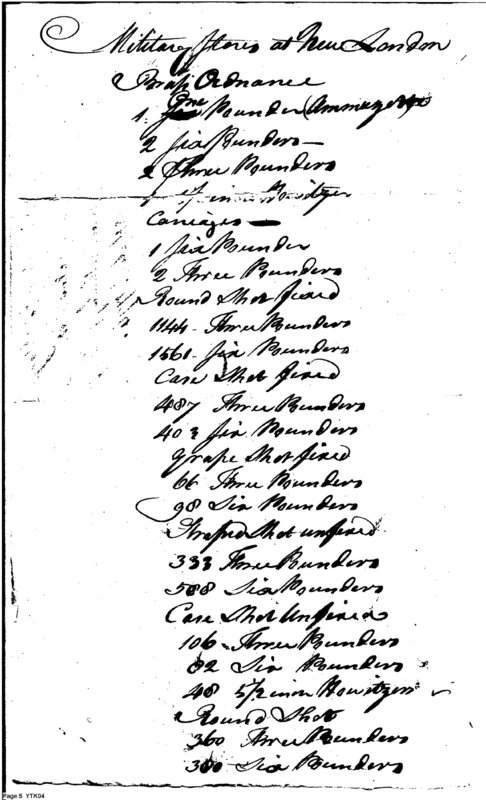 Military Stores at New London
Brass Ordnance
1 One Pounder (Ammuzett)
2 Six Pounders —
2 Three Pounders
1 5½ inch Howitzer
Carriages —
1 Six Pounder
2 Three Pounders
Round Shot fixed
1144 - Three Pounders
1561 - Six Pounders
Case Shot fixed
487 Three Pounders
403 Six Pounders
Grape Shot fixed
66 Three Pounders
98 Six Pounders
Straped Shot unfixed
333 Three Pounders
508 Six Pounders
Case Shot Unfixed
106 - Three Pounders
82 Six Pounders
48 5½ inch Howitzers
Round Shot
360 Three Pounders
300 - Six Pounders
Page 5 YTK04